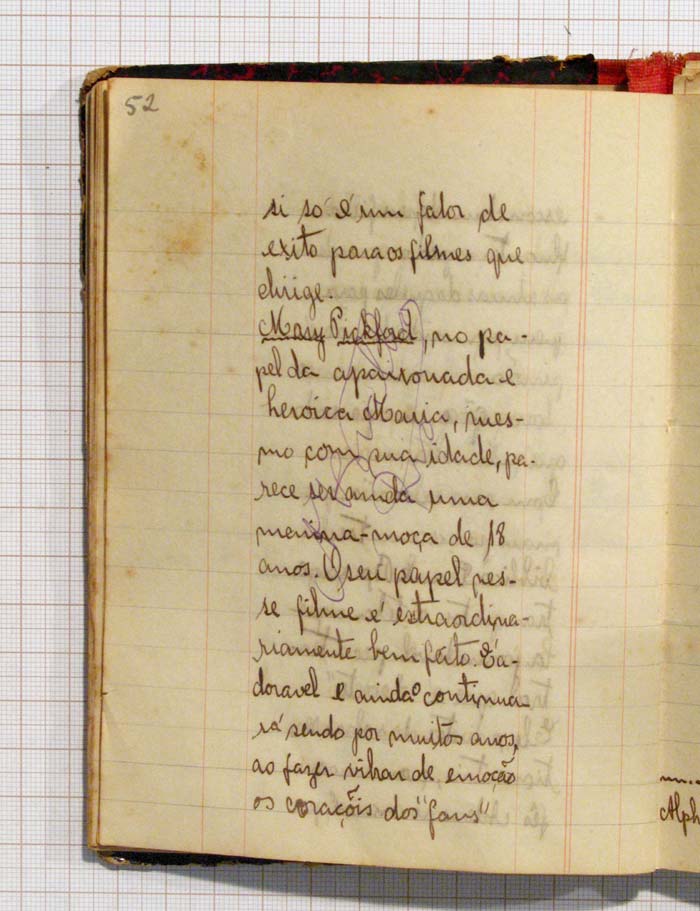 52
si só é um fator de
exito para os filmes que
dirige.
Mary Pickford, no pa-
pel da apaixonada e
heroica Maria, mes-
mo com sua idade, pa-
rece ser ainda uma
menina-moça de 18
anos. O seu papel nes-
se filme é extraordina-
riamente bem feito. É a-
doravel e ainda o continua
rá sendo por muitos anos,
ao fazer vibrar de emoção
os coraçõis dos "fans"
Alph